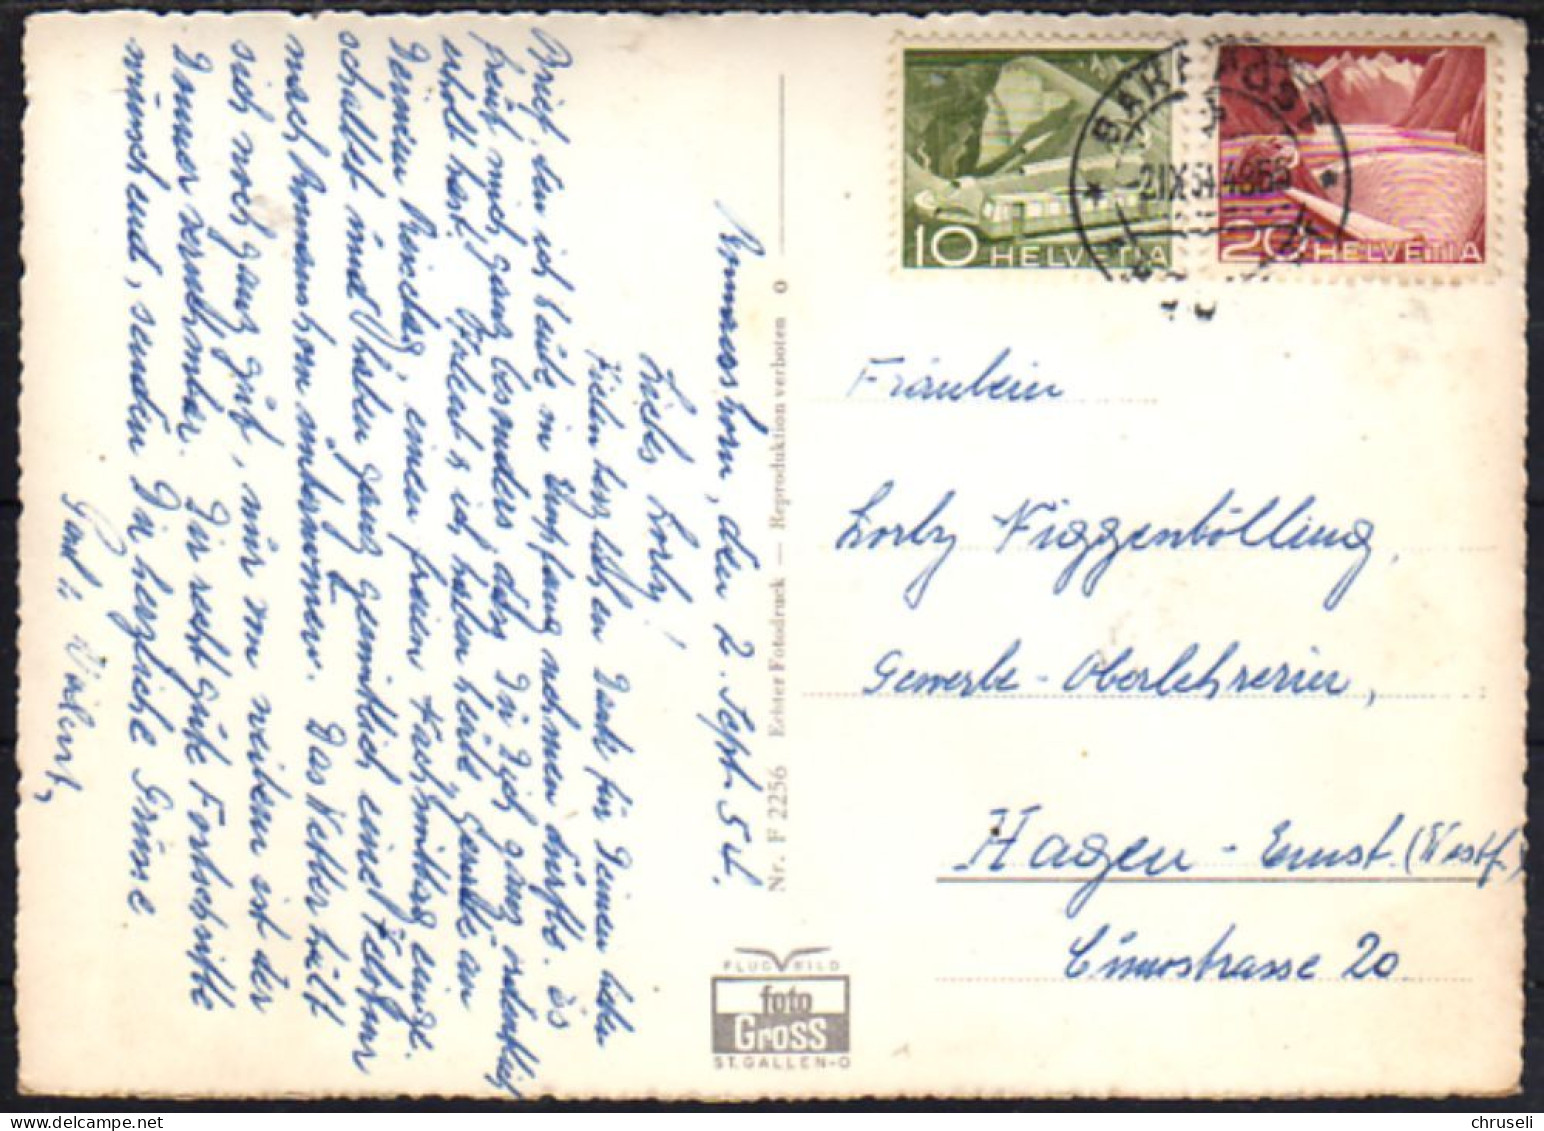 Romanshorn, den 2. Sept. 54.
Liebes Lorly!
Vielen herzlichen Dank für Deinen lieben
Brief, den ich heute in Empfang nehmen durfte. Es
freut mich ganz besonders, dass Du Dich ganz ordentlich
erholt hast. Prieba & ich haben heute, Gerade an
Deinem Reisetag, einen freien Nachmittag einge-
schaltet und haben ganz gemütlich eine Velotour
nach Romanshorn unternommen. Das Wetter hält
sich noch ganz gut, nur von weitem ist der
Donner vernehmbar. Dir recht gute Fortschritte
wünschend, senden Dir herzliche Grüsse
Nr. F 2256 Echter Fotodruck — Reproduktion verboten o
FLUG BILD
foto
Gross
ST. GALLEN-O
10 HELVETIA
20 HELVETIA
BAHNPOST
-2.IX.54.4866
Fräulein
Lorly Niggenbölling,
Gewerbe-Oberlehrerin,
Hagen-Emst. (Westf.)
Cunostrasse 20
chruseli